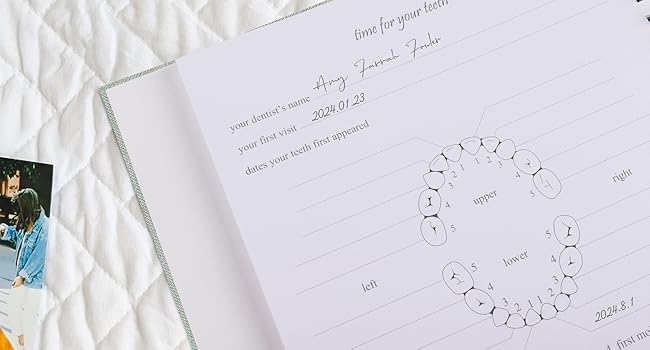 time for your teeth
your dentist's name Amy Farrah Fowler
your first visit 2024.01.23
dates your teeth first appeared
1 1
2 2
3 3
4 4
5 5
upper
right
left
lower
5 5
4 4
3 3
2 2
1 1
2024.8.1
first mo